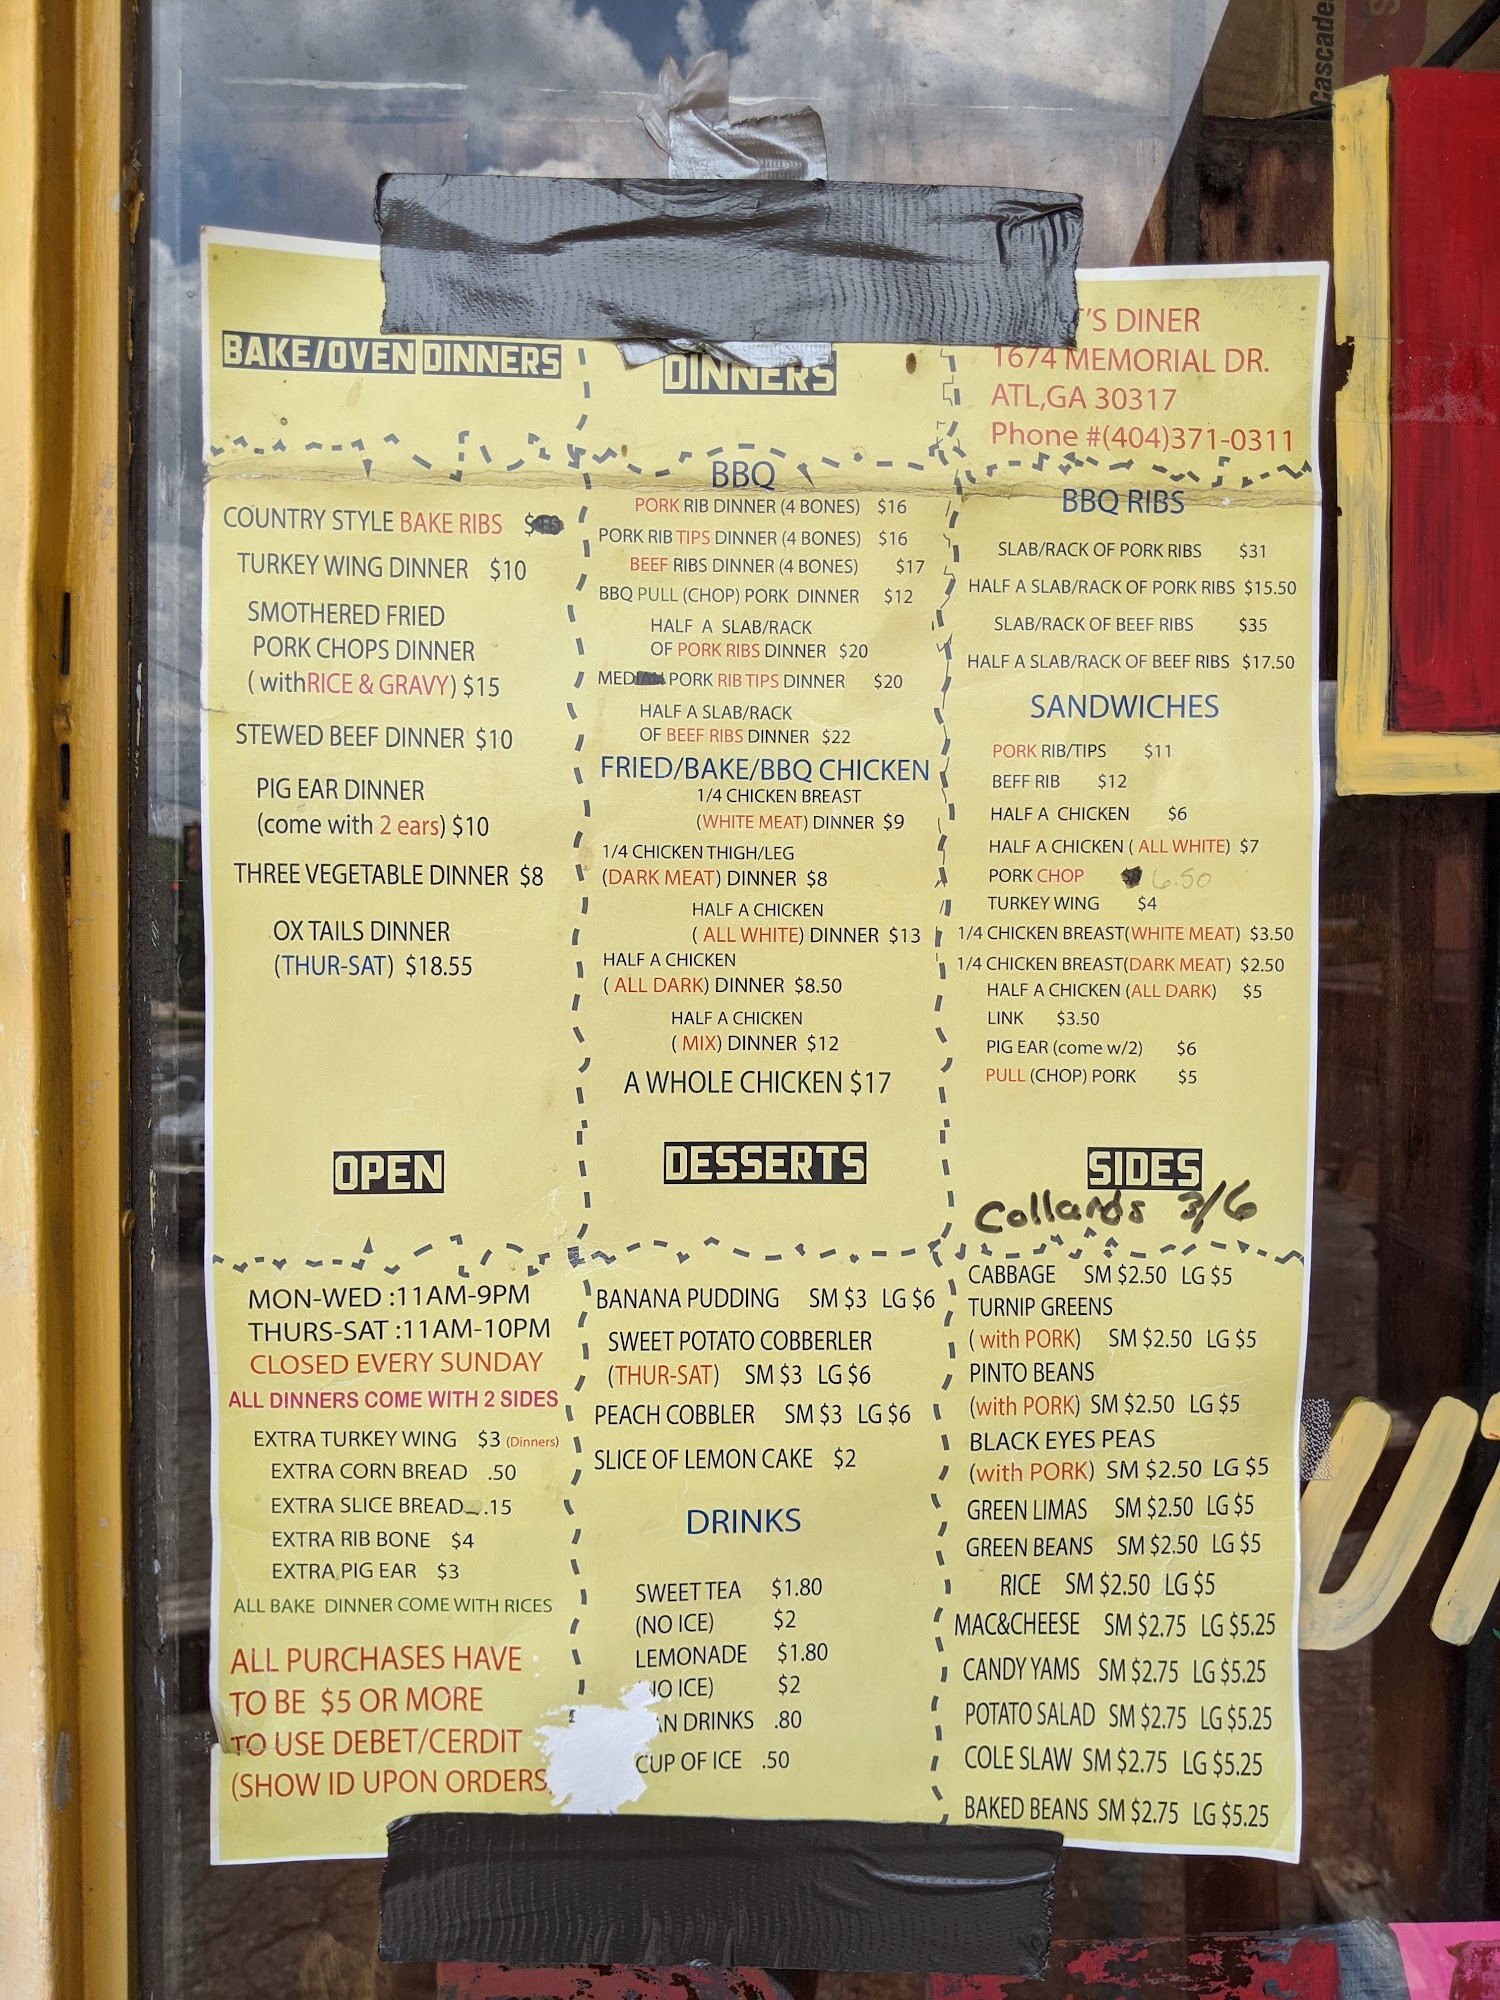 Cascade
BAKE/OVEN DINNERS
COUNTRY STYLE BAKE RIBS $
TURKEY WING DINNER $10
SMOTHERED FRIED
PORK CHOPS DINNER
( withRICE & GRAVY) $15
STEWED BEEF DINNER $10
PIG EAR DINNER
(come with 2 ears) $10
THREE VEGETABLE DINNER $8
OX TAILS DINNER
(THUR-SAT) $18.55
DINNERS
BBQ
PORK RIB DINNER (4 BONES) $16
PORK RIB TIPS DINNER (4 BONES) $16
BEEF RIBS DINNER (4 BONES) $17
BBQ PULL (CHOP) PORK DINNER $12
HALF A SLAB/RACK
OF PORK RIBS DINNER $20
MED PORK RIB TIPS DINNER $20
HALF A SLAB/RACK
OF BEEF RIBS DINNER $22
FRIED/BAKE/BBQ CHICKEN
1/4 CHICKEN BREAST
(WHITE MEAT) DINNER $9
1/4 CHICKEN THIGH/LEG
(DARK MEAT) DINNER $8
HALF A CHICKEN
( ALL WHITE) DINNER $13
HALF A CHICKEN
( ALL DARK) DINNER $8.50
HALF A CHICKEN
( MIX) DINNER $12
A WHOLE CHICKEN $17
'S DINER
1674 MEMORIAL DR.
ATL,GA 30317
Phone #(404)371-0311
BBQ RIBS
SLAB/RACK OF PORK RIBS $31
HALF A SLAB/RACK OF PORK RIBS $15.50
SLAB/RACK OF BEEF RIBS $35
HALF A SLAB/RACK OF BEEF RIBS $17.50
SANDWICHES
PORK RIB/TIPS $11
BEFF RIB $12
HALF A CHICKEN $6
HALF A CHICKEN ( ALL WHITE) $7
PORK CHOP 6.50
TURKEY WING $4
1/4 CHICKEN BREAST(WHITE MEAT) $3.50
1/4 CHICKEN BREAST(DARK MEAT) $2.50
HALF A CHICKEN (ALL DARK) $5
LINK $3.50
PIG EAR (come w/2) $6
PULL (CHOP) PORK $5
OPEN
MON-WED :11AM-9PM
THURS-SAT :11AM-10PM
CLOSED EVERY SUNDAY
ALL DINNERS COME WITH 2 SIDES
EXTRA TURKEY WING $3 (Dinners)
EXTRA CORN BREAD .50
EXTRA SLICE BREAD .15
EXTRA RIB BONE $4
EXTRA PIG EAR $3
ALL BAKE DINNER COME WITH RICES
ALL PURCHASES HAVE
TO BE $5 OR MORE
TO USE DEBET/CERDIT
(SHOW ID UPON ORDERS
DESSERTS
BANANA PUDDING SM $3 LG $6
SWEET POTATO COBBERLER
(THUR-SAT) SM $3 LG $6
PEACH COBBLER SM $3 LG $6
SLICE OF LEMON CAKE $2
DRINKS
SWEET TEA $1.80
(NO ICE) $2
LEMONADE $1.80
NO ICE) $2
AN DRINKS .80
CUP OF ICE .50
SIDES
Collards 3/6
CABBAGE SM $2.50 LG $5
TURNIP GREENS
( with PORK) SM $2.50 LG $5
PINTO BEANS
(with PORK) SM $2.50 LG $5
BLACK EYES PEAS
(with PORK) SM $2.50 LG $5
GREEN LIMAS SM $2.50 LG $5
GREEN BEANS SM $2.50 LG $5
RICE SM $2.50 LG $5
MAC&CHEESE SM $2.75 LG $5.25
CANDY YAMS SM $2.75 LG $5.25
POTATO SALAD SM $2.75 LG $5.25
COLE SLAW SM $2.75 LG $5.25
BAKED BEANS SM $2.75 LG $5.25